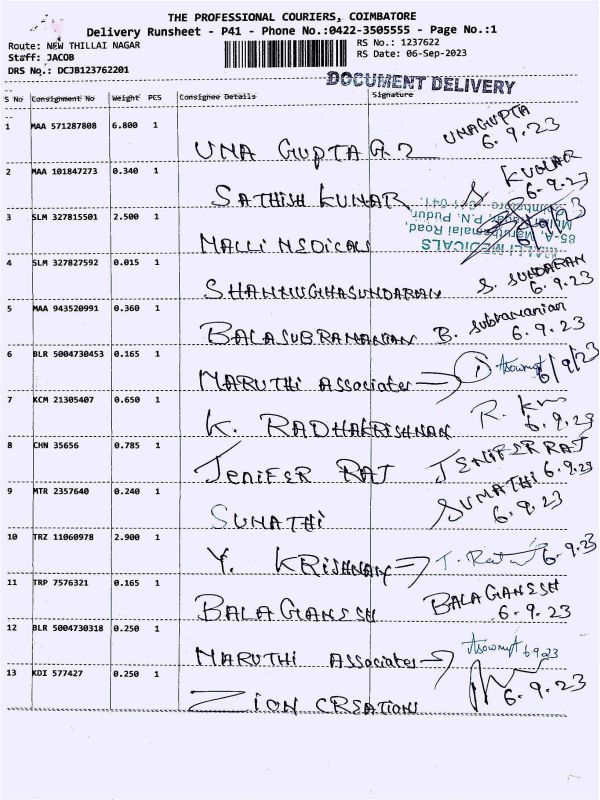 THE PROFESSIONAL COURIERS, COIMBATORE
Delivery Runsheet - P41 - Phone No.:0422-3505555 - Page No.:1
Route: NEW THILLAI NAGAR
Staff: JACOB
DRS No.: DCJB123762201
RS No.: 1237622
RS Date: 06-Sep-2023
DOCUMENT DELIVERY
S No Consignment No Weight PCS Consignee Details Signature
1 MAA 571287808 6.800 1 UMA GUPTA G.2 UMAGUPTA 6.9.23
2 MAA 101847273 0.340 1 SATHISH KUMAR S KUMAR 6.9.23
3 SLM 327815501 2.500 1 MALLI MEDICALS 6/9/23
MALLI MEDICALS
85-A, Maruthamalai Road,
P.N. Pudur,
Coimbatore - 641 041.
4 SLM 327827592 0.015 1 SHANMUGHASUNDARAM S. SUNDARAM 6.9.23
5 MAA 943520991 0.360 1 BALASUBRAMANIAN B. Subramanian 6.9.23
6 BLR 5004730453 0.165 1 MARUTHI Associates 6/9/23
7 KCM 21305407 0.650 1 K. RADHAKRISHNAN R. 6.9.23
8 CHN 35656 0.785 1 JENIFER RAJ JENIFER RAJ 6.9.23
9 MTR 2357640 0.240 1 SUMATHI SUMATHI 6.9.23
10 TRZ 11060978 2.900 1 Y. KRISHNAN 6.9.23
11 TRP 7576321 0.165 1 BALAGANESH BALAGANESH 6.9.23
12 BLR 5004730318 0.250 1 MARUTHI Associates 6.9.23
13 KDI 577427 0.250 1 ZION CREATION 6.9.23